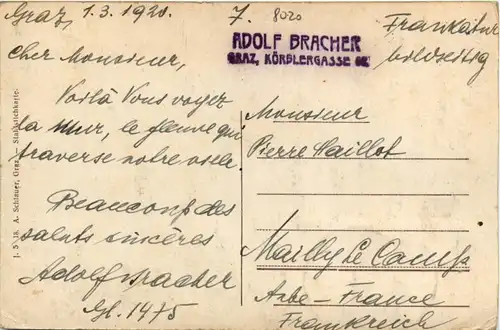 Graz, 1.3.1920.
7. 8020
Frankatur
bildseitig
ADOLF BRACHER
GRAZ, KÖRBLERGASSE
Cher Monsieur,
Voilà Vous voyez
la Mur, le fleuve qui
traverse notre
Beaucoup des
saluts sincères
Adolf Bracher
Gl. 1475
Monsieur
Pierre Maillot
Mailly le Camp
Aube - France
Frankreich
A. Schlauer, Graz